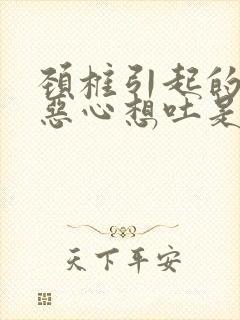 颈椎引起的
恶心想吐是
天下平安